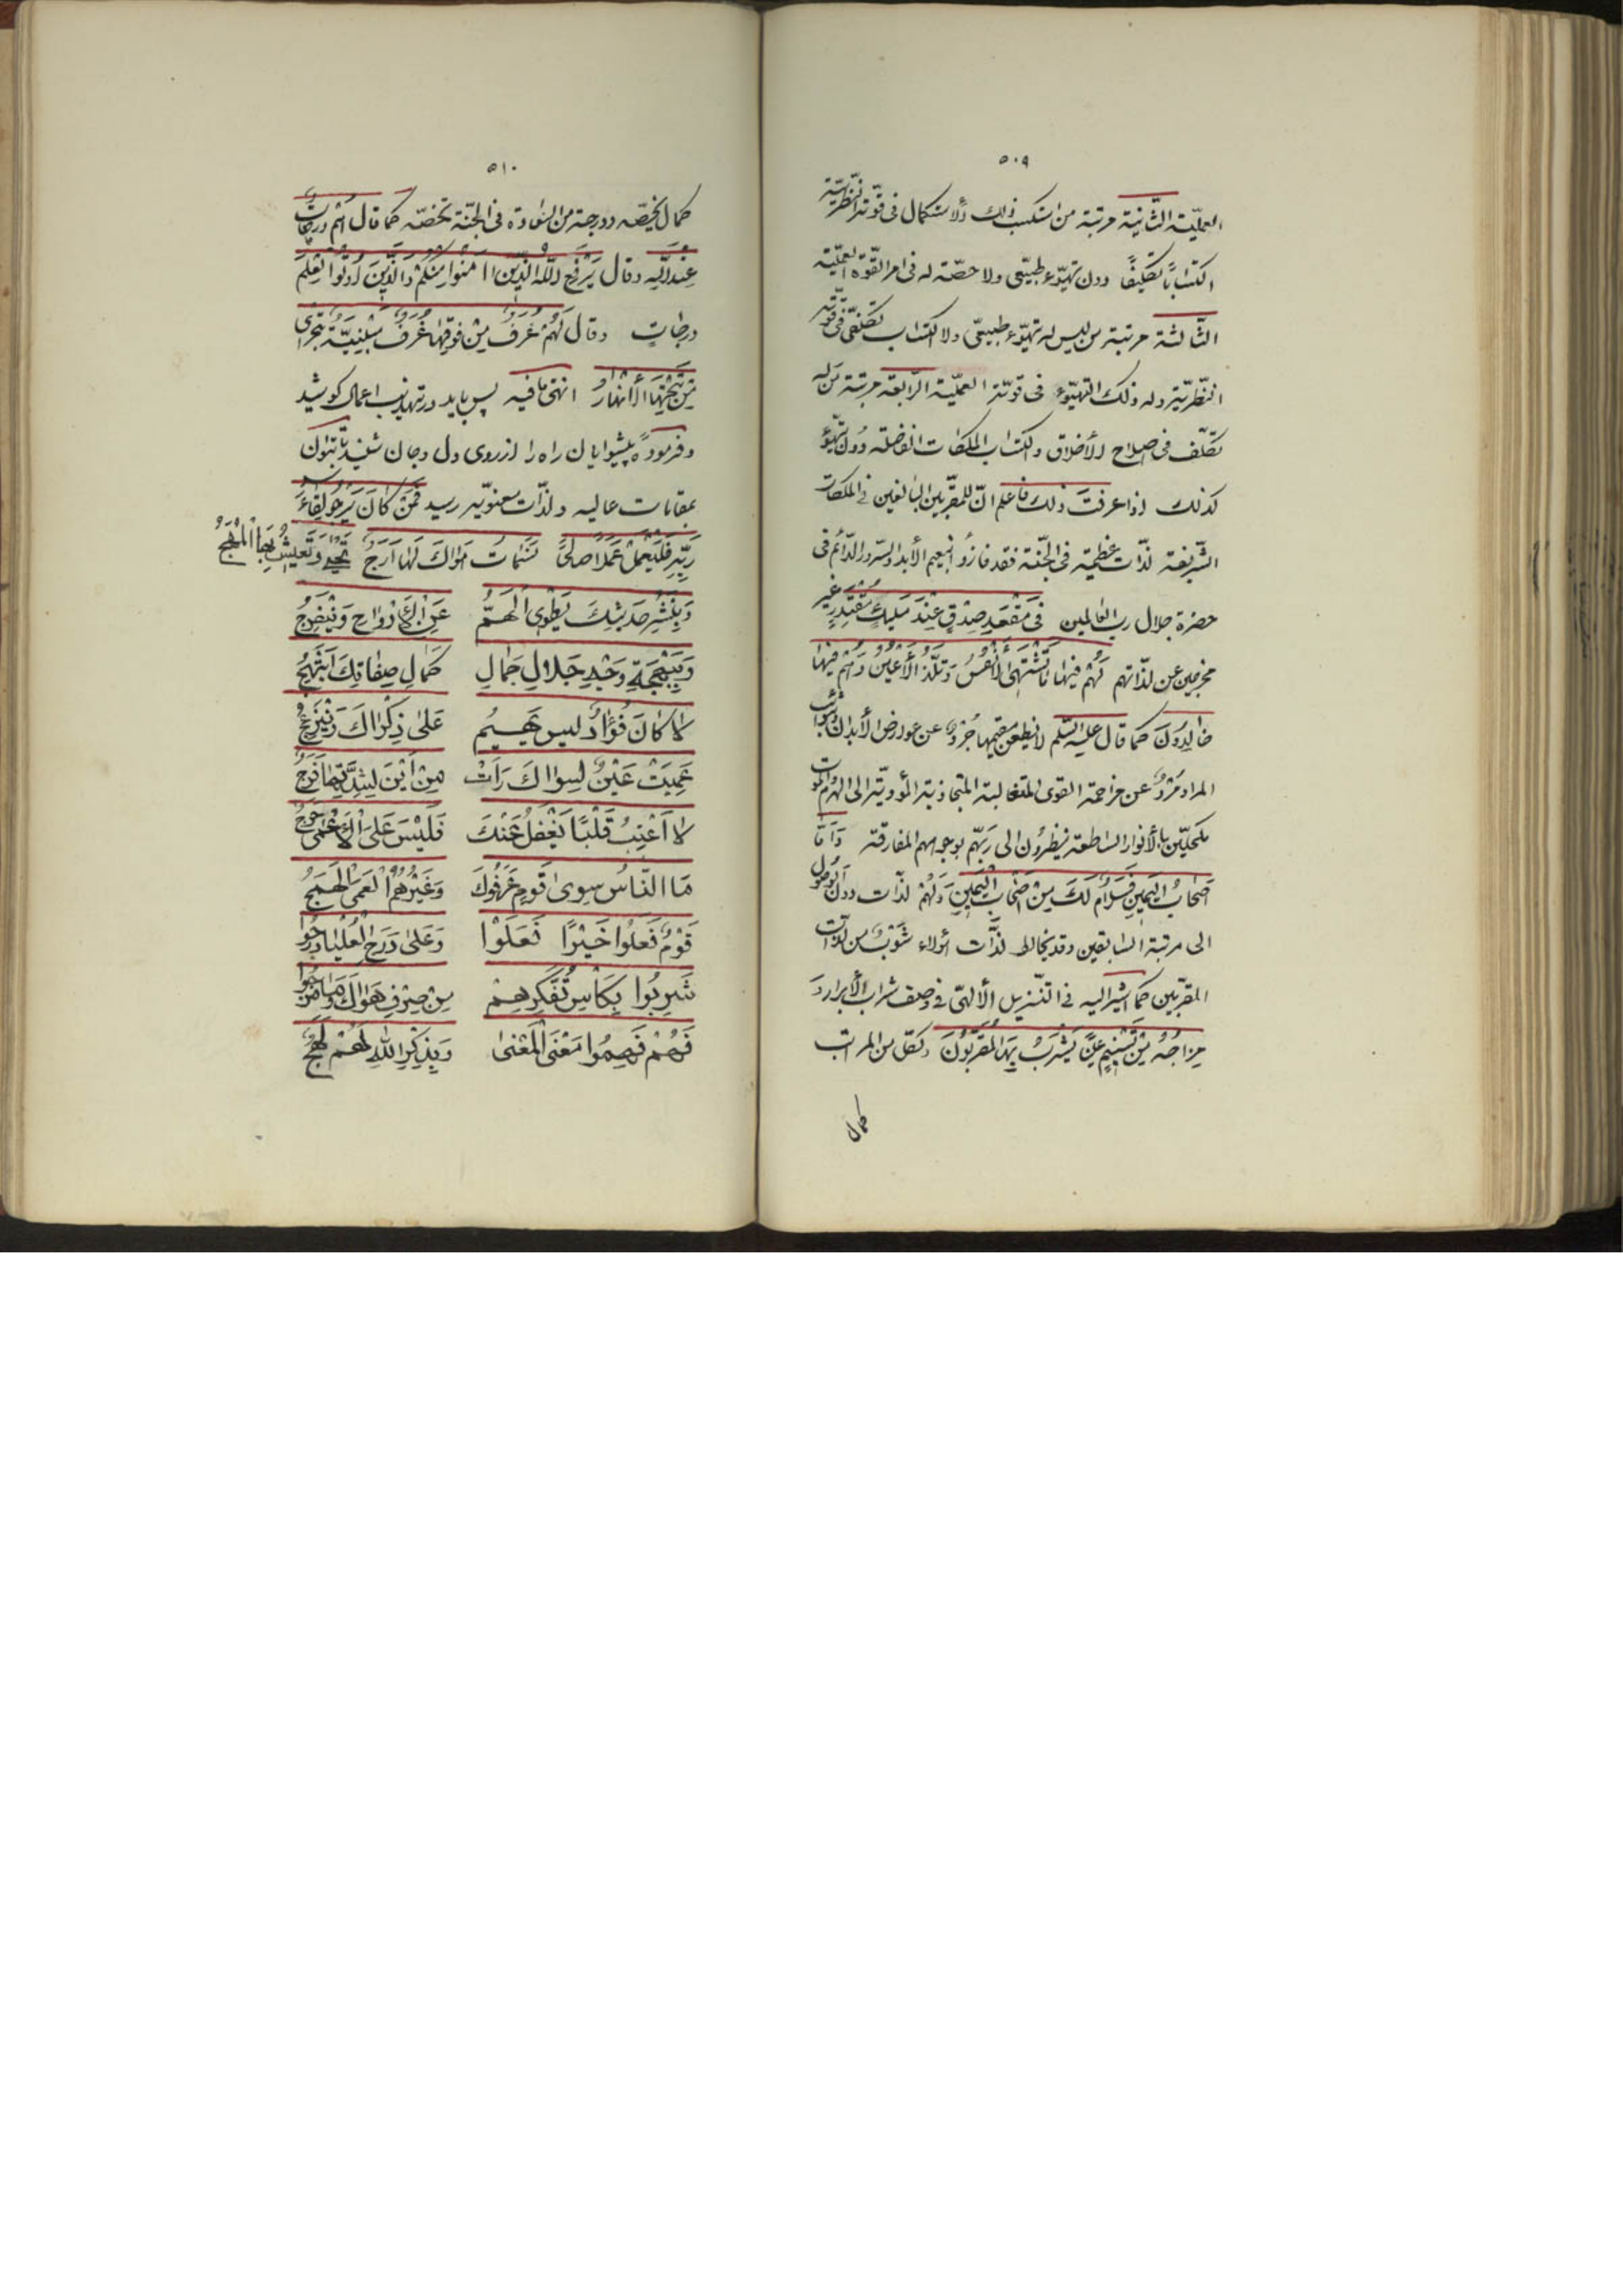 ٥٠٩
العمليّة الثّانية مرتبة من استكسب ذلك الاستكمال فى قوّته النّظريّة
اكتسابًا تكليفًا دون تهيّوء طبيعى ولا حصّة له فى امر القوّة العمليّة
الثّالثة مرتبة من ليس له تهيّوء طبيعىّ ولا اكتساب تكلّفى فى قوّته
النّظريّة وله ذلك التهيّوء فى قوّته العمليّة الرّابعة مرتبة من له
تكلّف فى اصلاح الأخلاق واكتساب الملكات الفاضلة دون تهيّؤ
كذلك اذا عرفت ذلك فاعلم انّ للمقرّبين البالغين فى الملكات
الشّريفة لذّات عظيمة فى الجنّة فقد فازوا بنعيم الأبد والسّرور الدّائم فى
حضرة جلال ربّ العالمين فى مَقْعَدِ صِدْقٍ عِنْدَ مَليكٍ مُقْتَدِرٍ غير
مخرجين عن لذّاتهم لَهُمْ فيها ما تَشْتَهِى الأَنْفُسُ وَتَلَذُّ الأَعْيُنُ وَهُمْ فيها
خالِدُونَ كما قال عليه السّلم لا يظعن مقيمها جُرْدٌ عن عوارض الأبدان
المراد مُرْدٌ عن مزاحمة القوى المتغالبة المتجاذبة المؤديّة الى الهرم والموت
مكحلّين بالأنوار السّاطعة ينظرُون الى رَبّهم بوجوههم المفارقة وَاَمّا
اَصْحابُ اليَمينِ فَسَلامٌ لَكَ مِنْ اَصْحابِ اليَمينِ وَلَهُمْ لذّات دون الوصول
الى مرتبة السّابقين وقد يخالط لذّات اولاء شَوْبٌ من لذّات
المقرّبين كما اشير اليه فى التنزيل الألهىّ فى وصف شراب الأبرار وَ
مِزاجُهُ مِنْ تَسْنيمٍ عَيْنًا يَشْرَبُ بِهَا المُقَرَّبُونَ ولكلّ من المراتب
كمال
٥١٠
كمال يخصّه ودرجة من السّعادة فى الجنّة تخصّه كما قال لهم درجاتٌ
عِنْدَ اللّهِ وقال يَرْفَعِ اللّهُ الّذينَ امَنُوا مِنْكُمْ وَالّذينَ اُوتُوا العِلْمَ
درجاتٍ وقال لَهُمْ غُرَفٌ مِنْ فَوْقِها غُرَفٌ مَبْنِيَّةٌ تَجْرى
مِنْ تَحْتِهَا الأَنْهارُ انتهى ما فيه پس بايد در تهذيب اعمال كوشيد
وفرمودهٔ پيشوايان راه را از روى دل وجان شنيد تا بتوان
بمقامات عاليه ولذّات معنويّه رسيد فَمَنْ كانَ يَرْجُو لِقاءَ
رَبِّهِ فَلْيَعْمَلْ عَمَلًا صالِحًا نَسَماتُ هَواكَ لَها اَرَجٌ تَحْيى وَتَعيشُ بِهَا المُهَجُ
وَبِنَشْرِ حَديثِكَ يُطْوَى الهَمُّ عَنِ الأَرْواحِ وَيَنْفَرِجُ
وَبِبَهْجَةِ وَجْهِ جَلالِ جَمالِ كَمالِ صِفاتِكَ اَبْتَهِجُ
لا كانَ فُؤادٌ لَيس يَهيمُ عَلى ذِكْراكَ وَيَنْزَعِجُ
عَمِيَتْ عَيْنٌ لِسِواكَ رَاَتْ مِنْ اَيْنَ لِشِدَّتِها فَرَجُ
لا اَعْتِبُ قَلْبًا يَغْفُلُ عَنْكَ فَلَيْسَ عَلَى الأَعْمى حَرَجُ
مَا النّاسُ سِوى قَومٍ عَرَفُوكَ وَغَيْرُهُمُ الهَمَجُ
قَوْمٌ فَعَلُوا خَيْرًا فَعَلَوْا وَعَلى دَرَجِ العُلْيا دَرَجُوا
شَرِبُوا بِكَاْسِ تَفَكُّرِهِمْ مِنْ صِرْفِ هَواكَ وَما مَزَجُوا
فَهُمْ فَهِمُوا مَعْنَى المَعْنى وَبِذِكْرِ اللّهِ لَهُمْ لَهَجُ